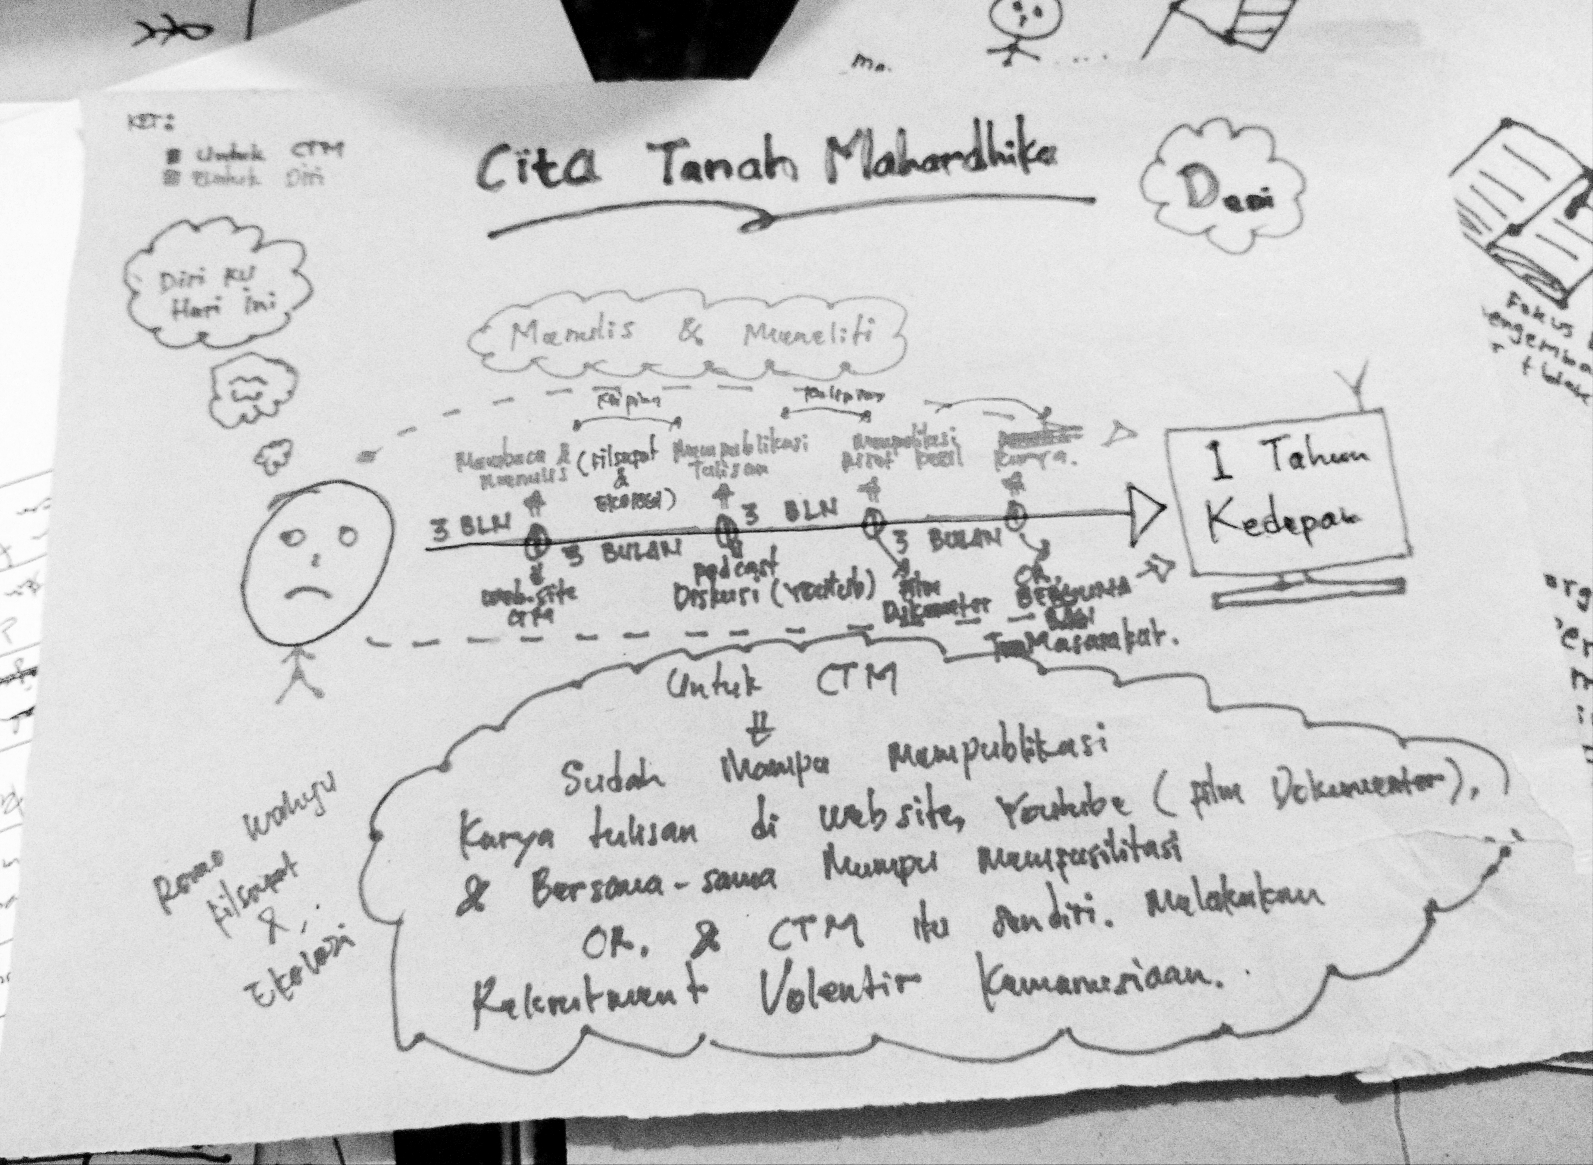 KET:
Untuk CTM
Untuk Diri
Cita Tanah Mahardhika
Deni
Diri ku
Hari ini
Menulis & Meneliti
Membaca &
Menulis
(Filsapat
&
Ekologi)
Mempublikasi
Tulisan
Karya.
3 BLN
3 BULAN
3 BLN
3 BULAN
Web.site
CTM
podcast
Diskusi (Youtub)
Film
Dokumenter
OR,
BERGUNA
BAGI
Masarakat.
1 Tahun
Kedepan
Untuk CTM
Sudah Mampu Mempublikasi
Karya tulisan di website, Youtube (film Dokumenter),
& Bersama-sama Mampu Mempasilitasi
OR, & CTM itu sendiri. Melakukan
Rekrutment Volentir Kemanusiaan.
Romo Wahyu
filsapat
&
Ekologi
Fokus